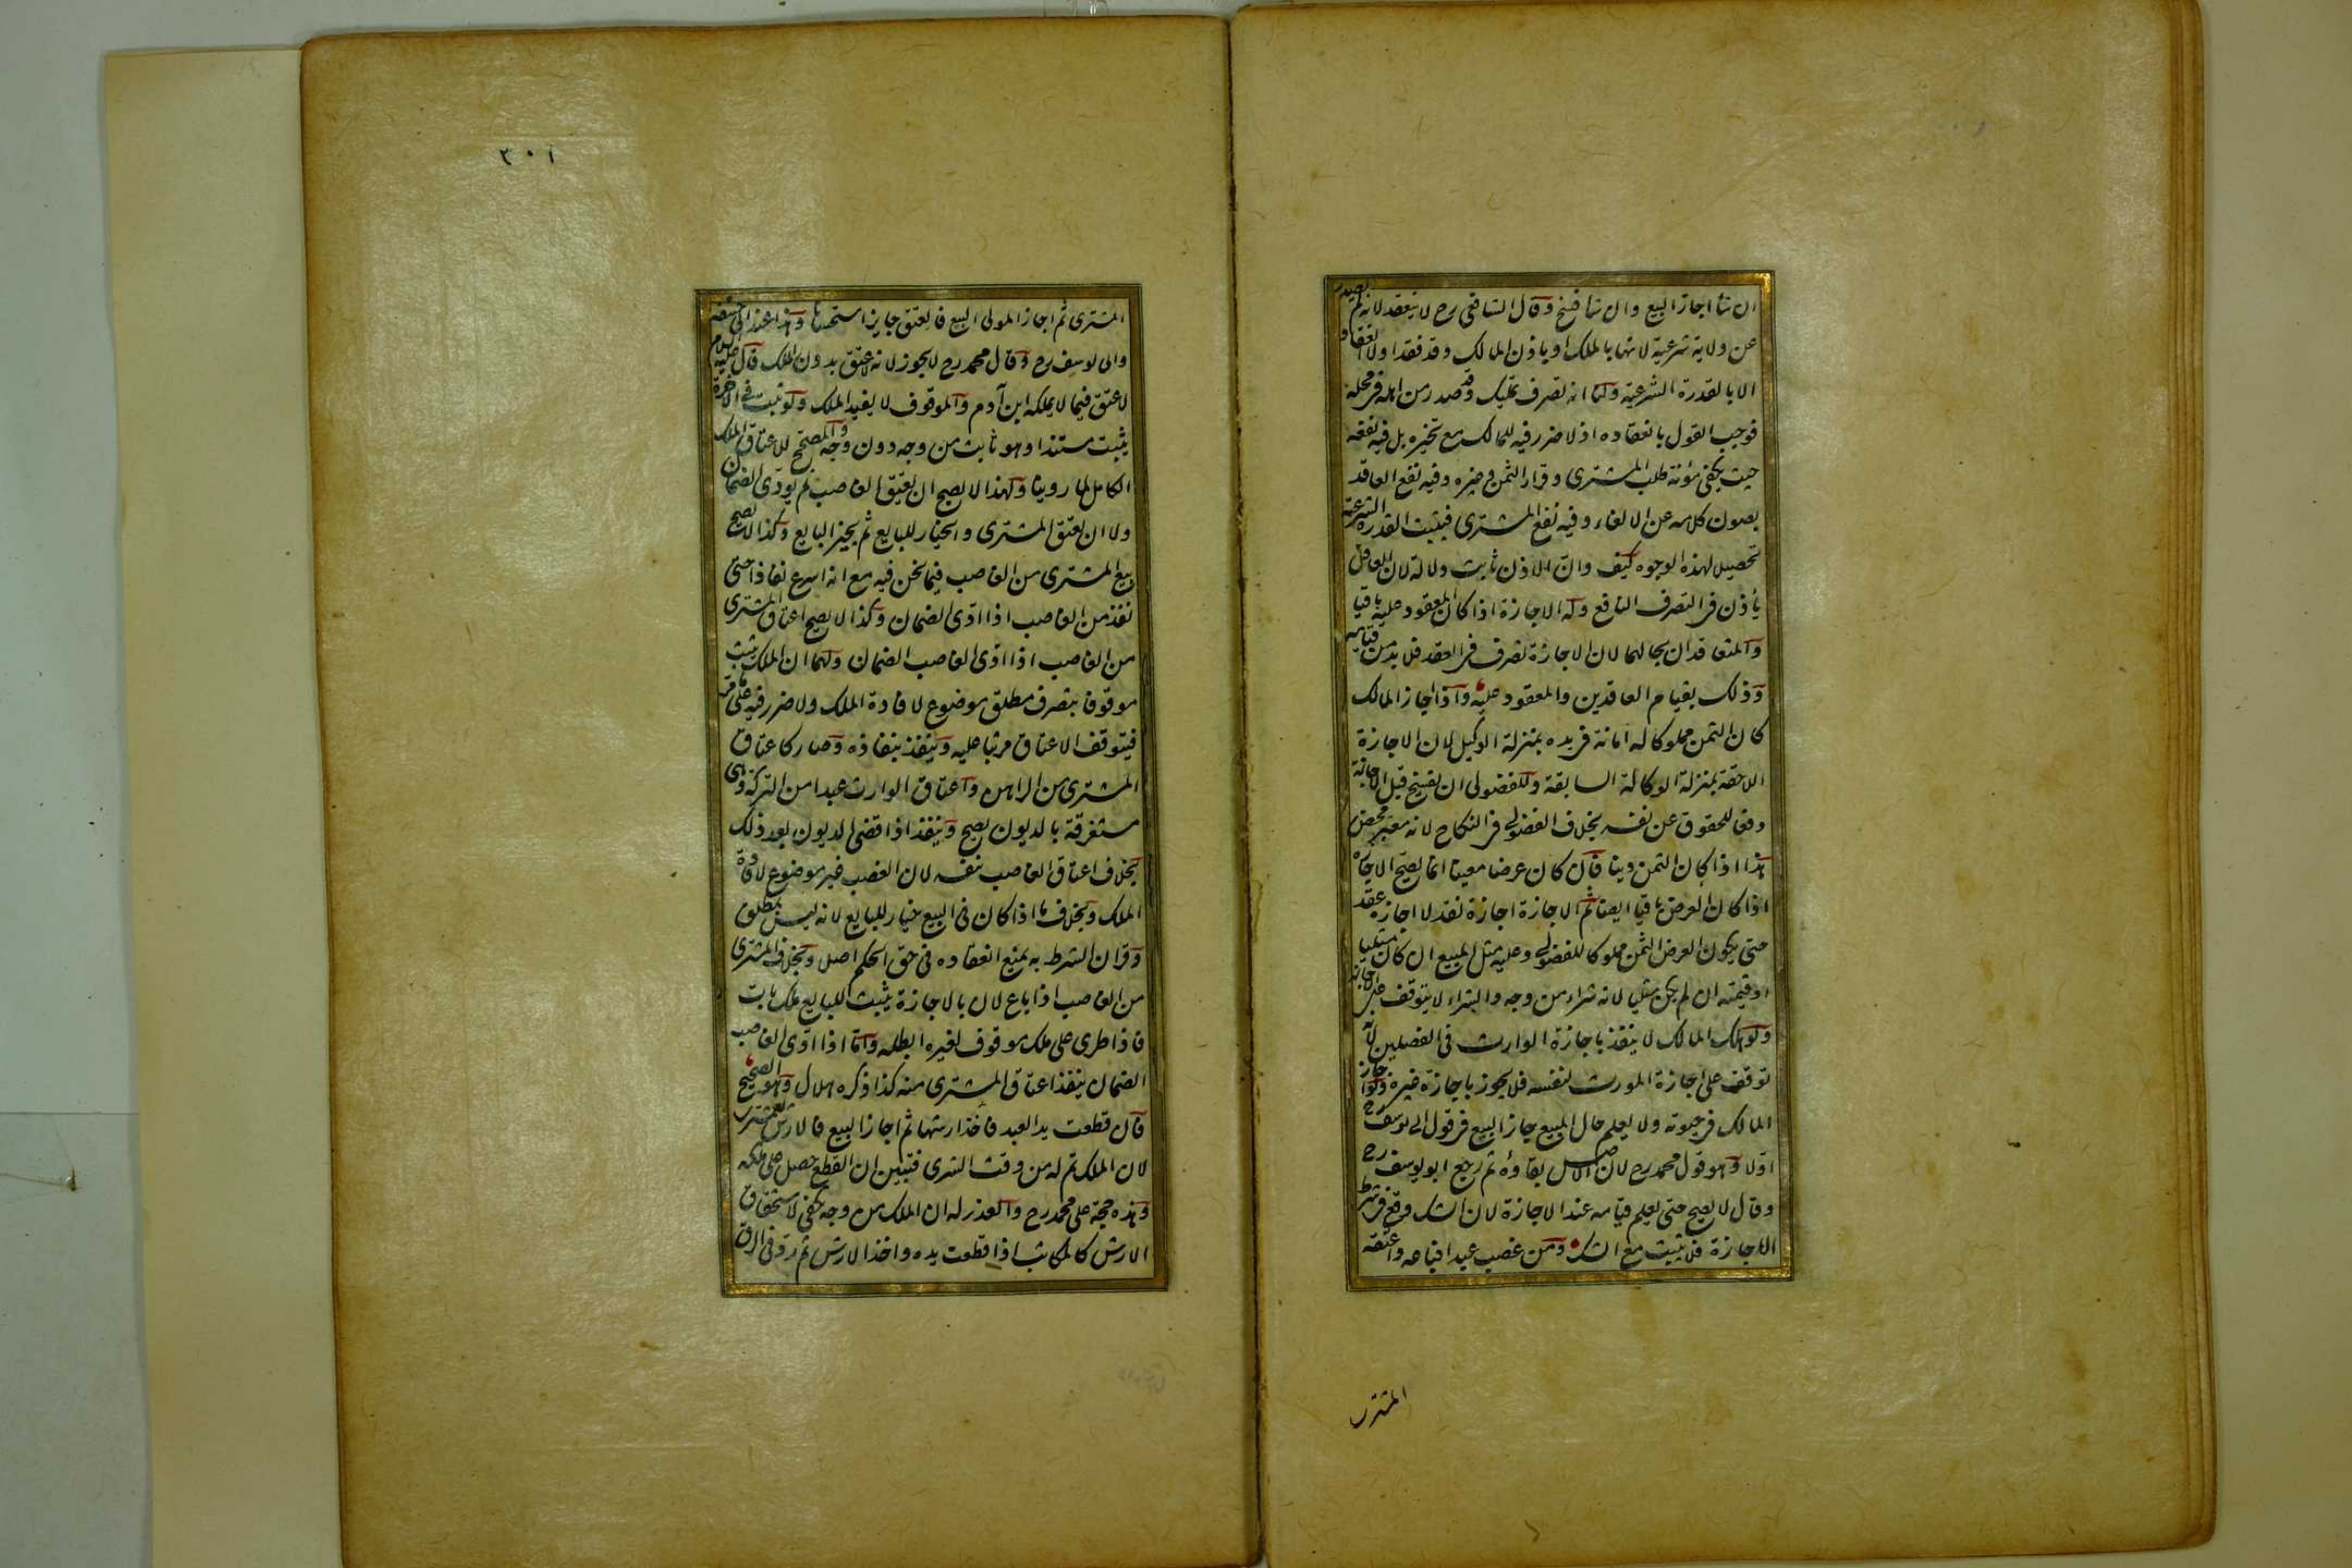 ان شاء اجاز البيع وان شا فسخ وقال الشافعي رح لا ينعقد لانه لم يصدر
عن ولاية شرعية لانها بالملك او باذن المالك وقد فقدا ولا انعقاد
الا بالقدرة الشرعية ولنا انه تصرف تمليك وقد صدر من اهله في محله
فوجب القول بانعقاده اذ لا ضرر فيه للمالك مع تخيره بل فيه نفعه
حيث يكفى مؤنة طلب المشترى وقرار الثمن و غيره وفيه نفع العاقد
بصون كلامه عن الالغاء وفيه نفع المشترى فيثبت القدرة الشرعية
تحصيلا لهذه الوجوه كيف وان الاذن ثابت دلالة لان العاقل
يأذن في التصرف النافع وله الاجازة اذا كان المعقود عليه باقيا
والمتعاقدان بحالهما لان الاجازة تصرف في العقد فلا بد من قيامه
وذلك بقيام العاقدين والمعقود عليه واذا اجاز المالك
كان الثمن مملوكا له امانة في يده بمنزلة الوكيل لان الاجازة
اللاحقة بمنزلة الوكالة السابقة وللفضولى ان يفسخ قبل الاجازة
دفعا للحقوق عن نفسه بخلاف الفضولي في النكاح لانه معبر محض
هذا اذا كان الثمن دينا فان كان عرضا معينا انما يصح الاجازة
اذا كان العرض باقيا ايضا ثم الاجازة اجازة نقد لا اجازة عقد
حتى يكون العرض الثمن مملوكا للفضولي وعليه مثل المبيع ان كان مثليا
او قيمته ان لم يكن مثليا لانه شراء من وجه والشراء لا يتوقف على الاجازة
ولو هلك المالك لا ينفذ باجازة الوارث في الفصلين لانه
توقف على اجازة المورث لنفسه فلا يجوز باجازة غيره ولو اجاز
المالك في حيوته ولا يعلم حال المبيع جاز البيع في قول ابي يوسف رح
اولا وهو قول محمد رح لان الاصل بقاؤه ثم رجع ابو يوسف رح
وقال لا يصح حتى يعلم قيامه عند الاجازة لان الشك وقع في شرط
الاجازة فلا يثبت مع الشك ومن غصب عبدا فباعه واعتقه
المشترى
٣٠١
المشترى ثم اجاز المولى البيع فالعتق جايز استحسانا وهذا عند ابي حنيفة
وابى يوسف رح وقال محمد رح لا يجوز لانه لا عتق بدون الملك قال عليه السلام
لا عتق فيما لا يملكه ابن آدم والموقوف لا يفيد الملك ولو ثبت في الاخرة
يثبت مستندا وهو ثابت من وجه دون وجه والمصحح للاعتاق الملك
الكامل لما روينا ولهذا لا يصح ان يعتق الغاصب ثم يودى الضمان
ولا ان يعتق المشترى والخيار للبايع ثم يجيز البايع وكذا لا يصح
بيع المشترى من الغاصب فيما نحن فيه مع انه اسرع نفاذا حتى
نفذ من الغاصب اذا ادى الضمان وكذا لا يصح اعتاق المشترى
من الغاصب اذا ادى الغاصب الضمان ولهما ان الملك يثبت
موقوفا بتصرف مطلق موضوع لافادة الملك ولا ضرر فيه على ما مر
فيتوقف الاعتاق مرتبا عليه وينفذ بنفاذه وصار كاعتاق
المشترى من الراهن واعتاق الوارث عبدا من التركة وهى
مستغرقة بالديون يصح وينفذ اذا قضى الديون بعد ذلك
بخلاف اعتاق الغاصب بنفسه لان الغصب غير موضوع لافادة
الملك وبخلاف ما اذا كان فى البيع خيار للبايع لانه ليس بمطلق
وقران الشرط به يمنع انعقاده فى حق الحكم اصلا وبخلاف المشترى
من الغاصب اذا باع لان بالاجازة يثبت للبايع ملك بات
فاذا طرى على ملك موقوف لغيره ابطله واما اذا ادى الغاصب
الضمان ينفذ اعتاق المشترى منه كذا ذكره هلال وهو الصحيح
قال قطعت يد العبد فاخذ ارشها ثم اجاز البيع فالارش للمشترى
لان الملك تم له من وقت الشرى فتبين ان القطع حصل على ملكه
وهذه حجة على محمد رح والعذر له ان الملك من وجه يكفى لاستحقاق
الارش كالمكاتب اذا قطعت يده واخذ الارش ثم رد فى الرق